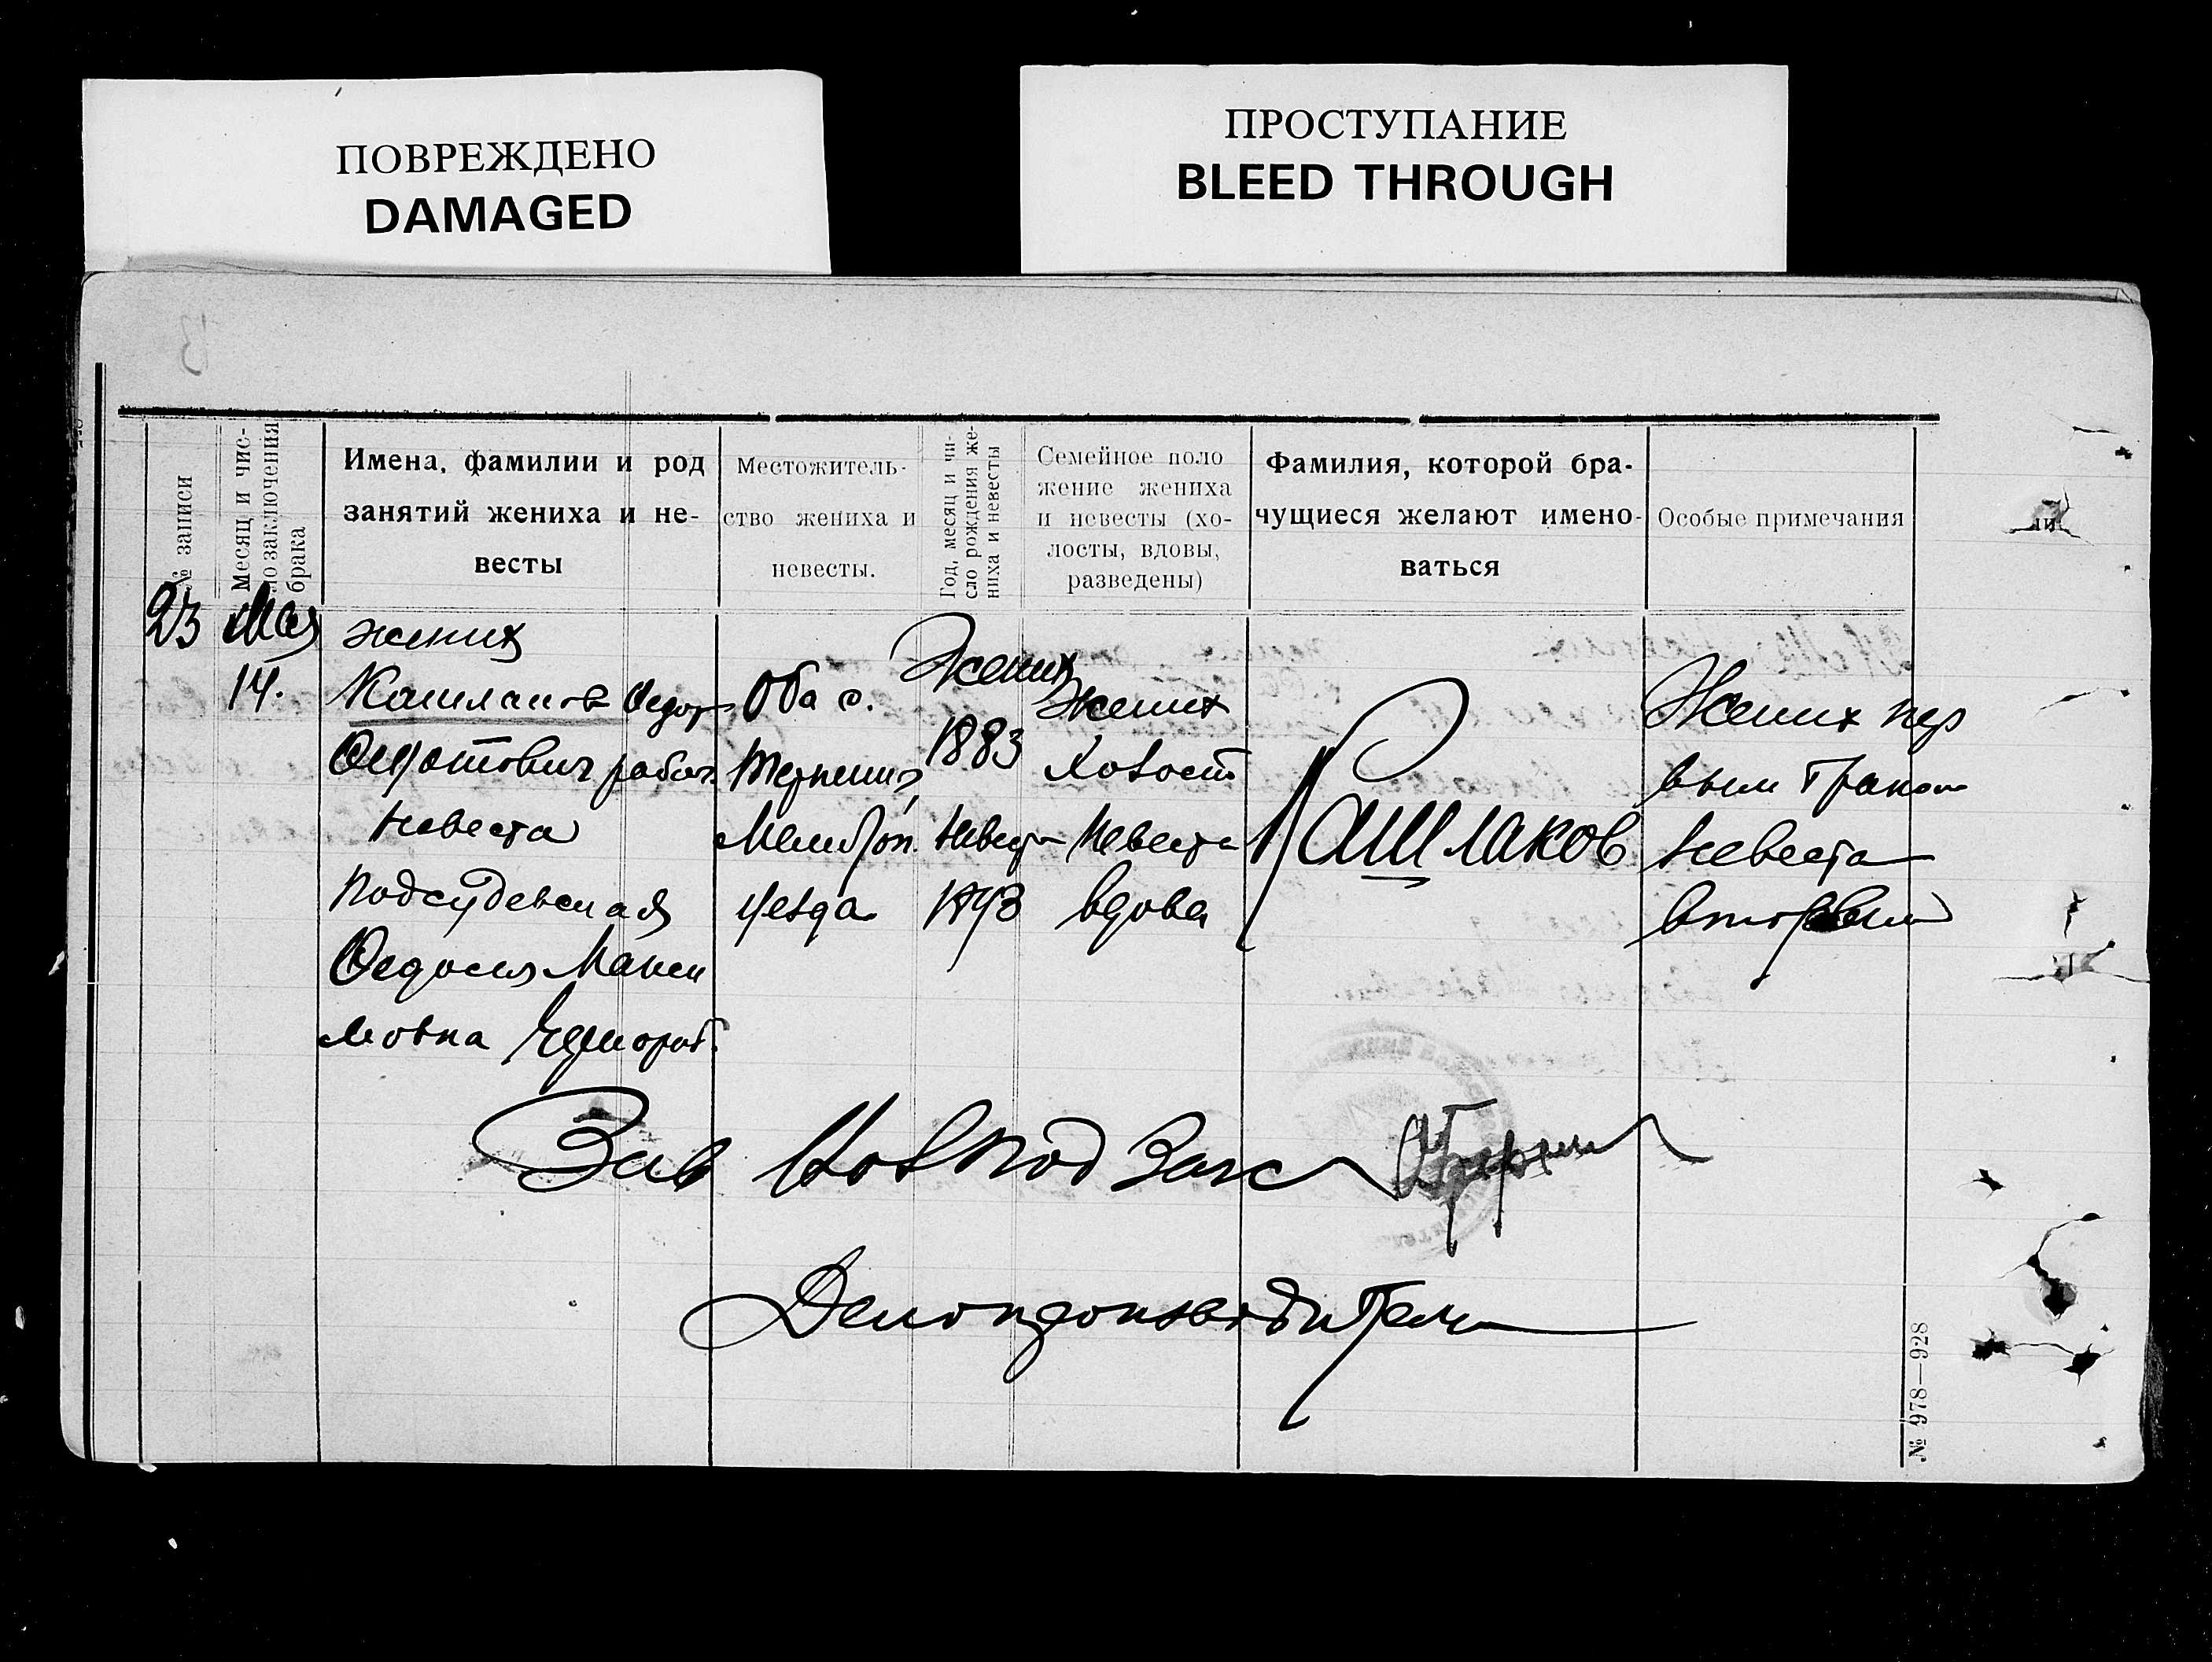 ПОВРЕЖДЕНО
DAMAGED
ПРОСТУПАНИЕ
BLEED THROUGH
№ записи
Месяц и чис-
ло заключения
брака
Имена, фамилии и род
занятий жениха и не-
весты
Местожитель-
ство жениха и
невесты.
Год, месяц и чи-
сло рождения же-
ниха и невесты
Семейное поло
жение жениха
и невесты (хо-
лосты, вдовы,
разведены)
Фамилия, которой бра-
чущиеся желают имено-
ваться
Особые примечания
23
Мая
14.
жених
Кашлаков Федор
рабоч.
невеста
Подсудевская
Федосия Макси
мовна
Оба с.
Терпения
Мелитоп.
уезда
Жених
1883
Невеста
Жених
Холост
Невеста
вдова
Кашлаков
Жених пер
вым браком
Невеста
вторым
Зав Загс
Делопроизводитель
№ 978—928